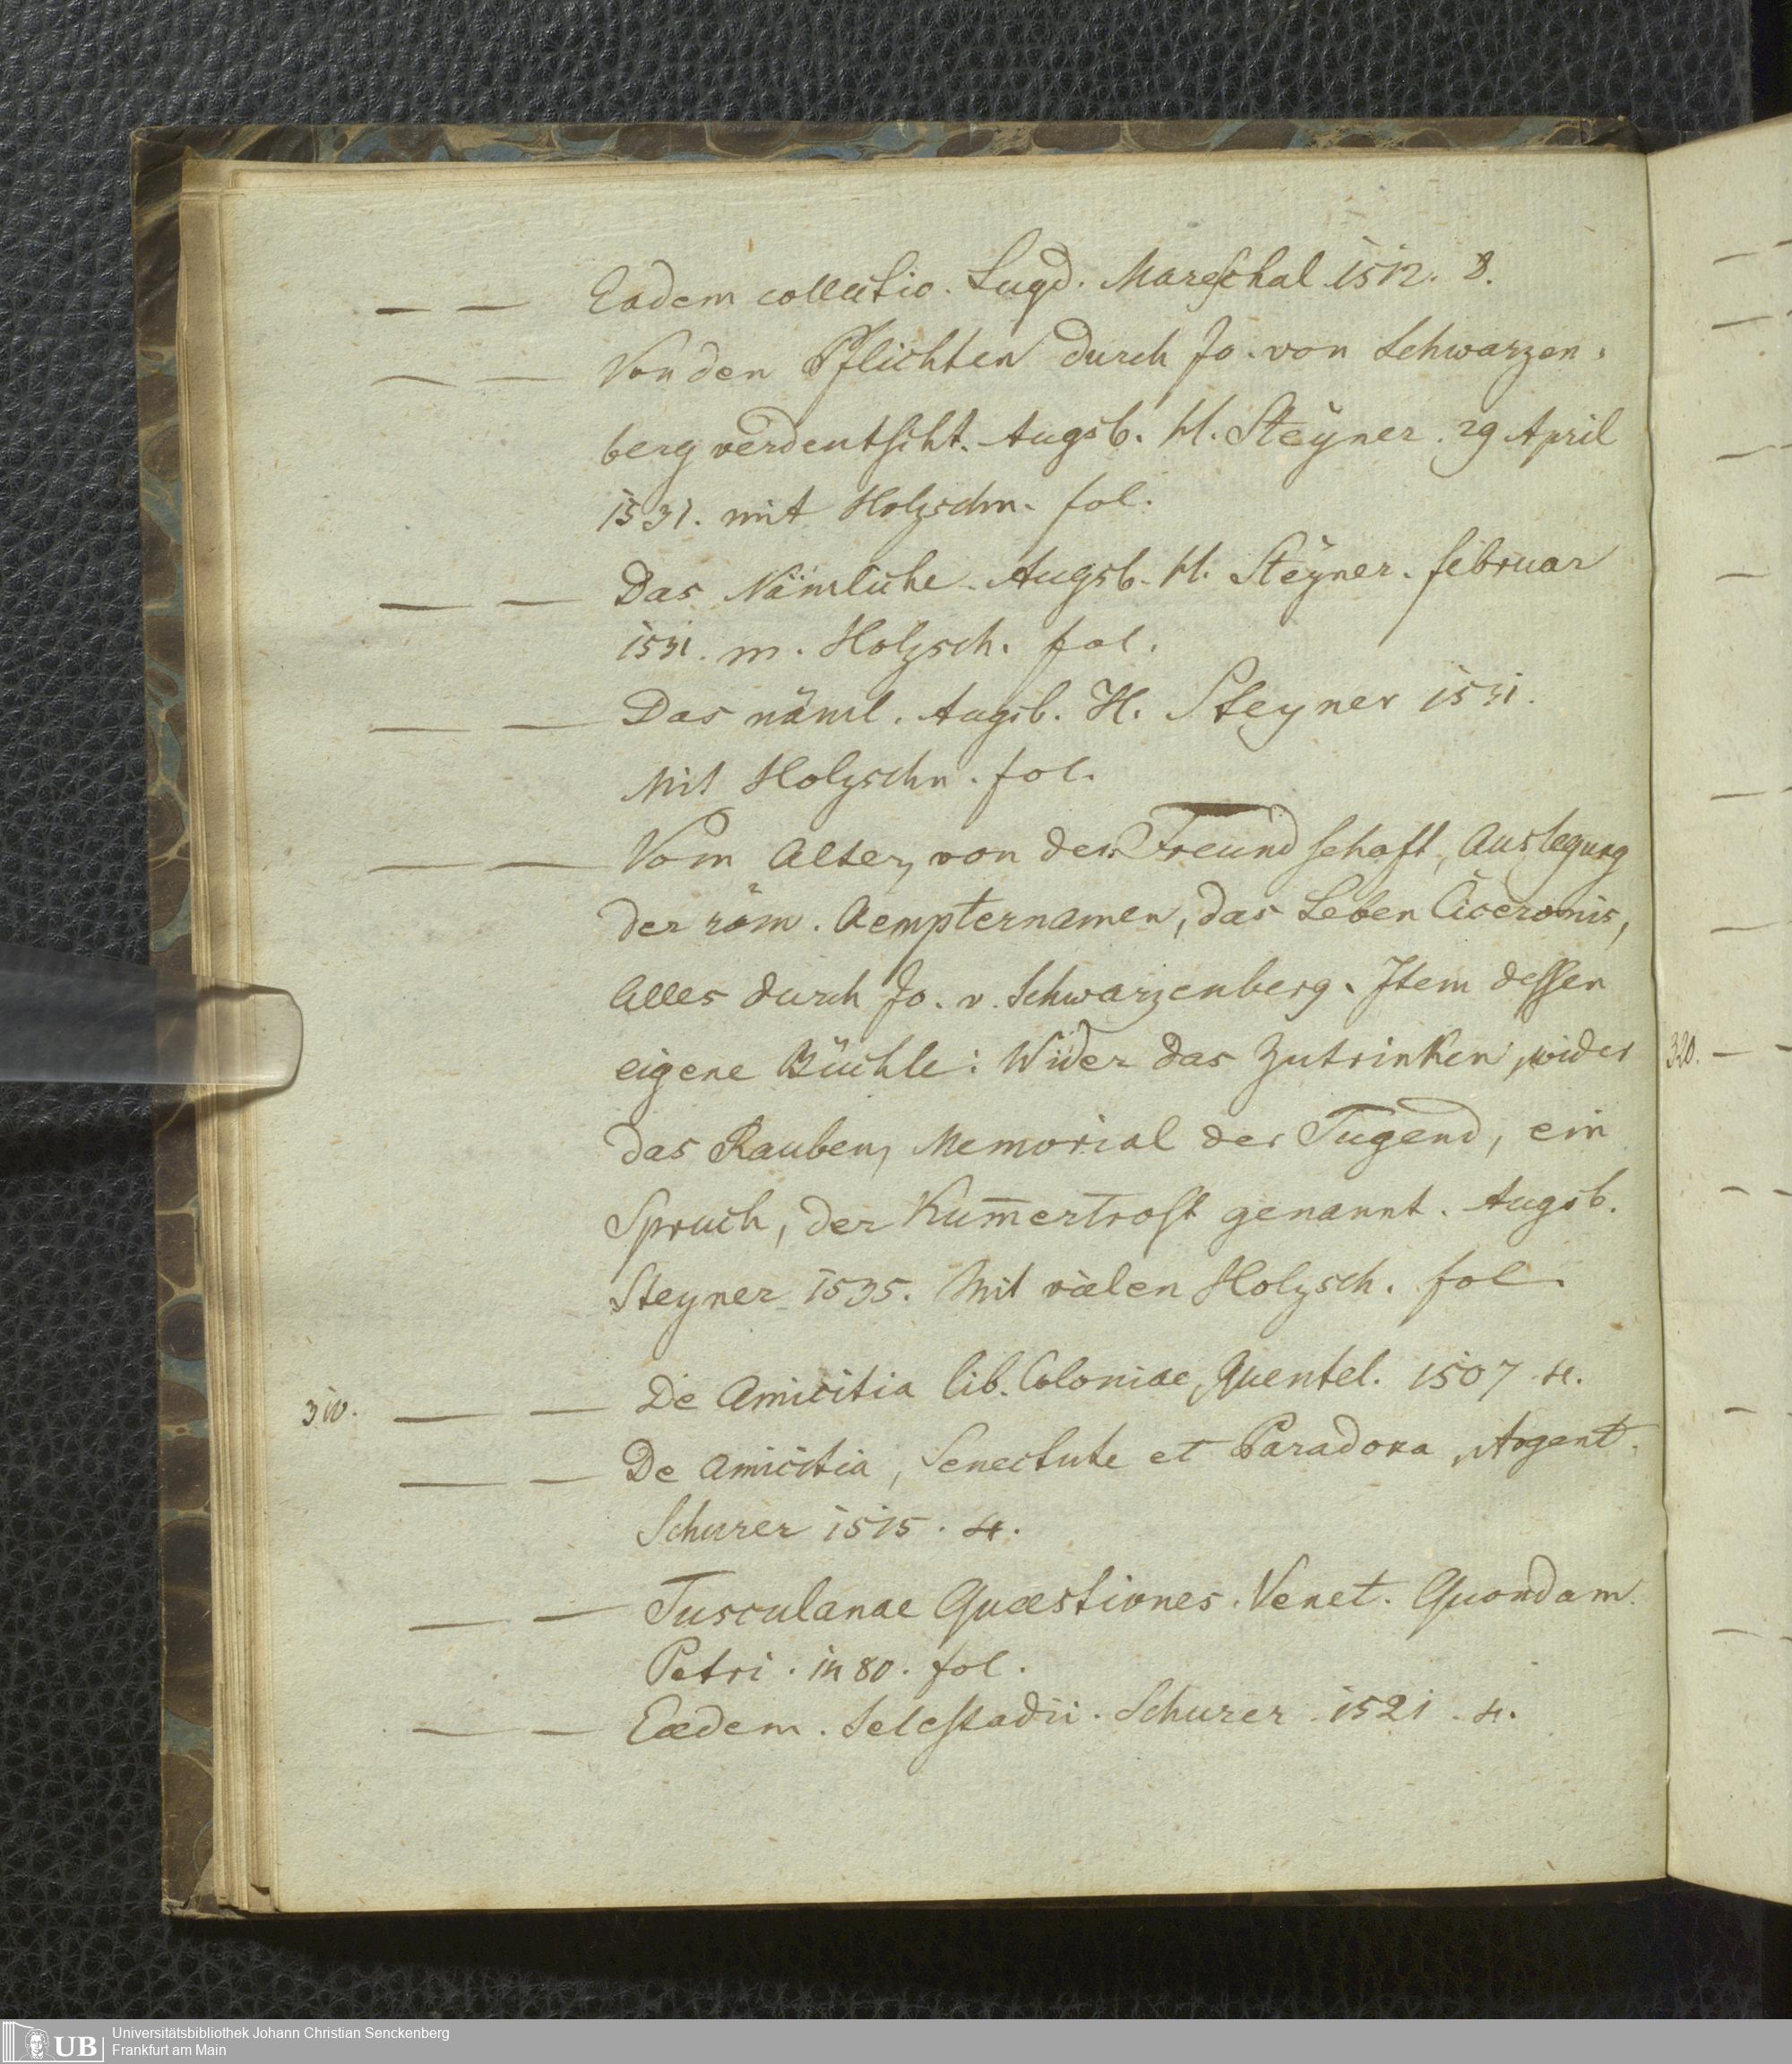 — — Eadem collectio. Lugd. Mareschal 1512. 8.
— — Von den Pflichten durch Jo. von Schwarzen-
berg verdeutscht. Augsb. H. Steyner. 29 April
1531. mit Holzschn. fol.
— — Das Nämliche. Augsb. H. Steyner. februar
1531. m. Holzsch. fol.
— — Das näml. Augsb. H. Steyner 1531.
Mit Holzschn. fol.
— — Vom Alter, von der Freundschaft, Auslegung
der röm. Aempternamen, das Leben Ciceronis,
Alles durch Jo. v. Schwarzenberg. Item dessen
eigene Büchle: Wider das Zutrinken, wider
das Rauben, Memorial der Tugend, ein
Spruch, der Kum̅ertrost genannt. Augsb.
Steyner 1535. Mit vielen Holzsch. fol.
310. — — De Amicitia lib. Coloniae, Quentel. 1507. 4.
— — De Amicitia, Senectute et Paradoxa, Argent.
Schurer 1515. 4.
— — Tusculanae Quaestiones. Venet. Quondam
Petri. 1480. fol.
— — Eaedem. Selestadii. Schurer 1521. 4.
320.
UB Universitätsbibliothek Johann Christian Senckenberg
Frankfurt am Main